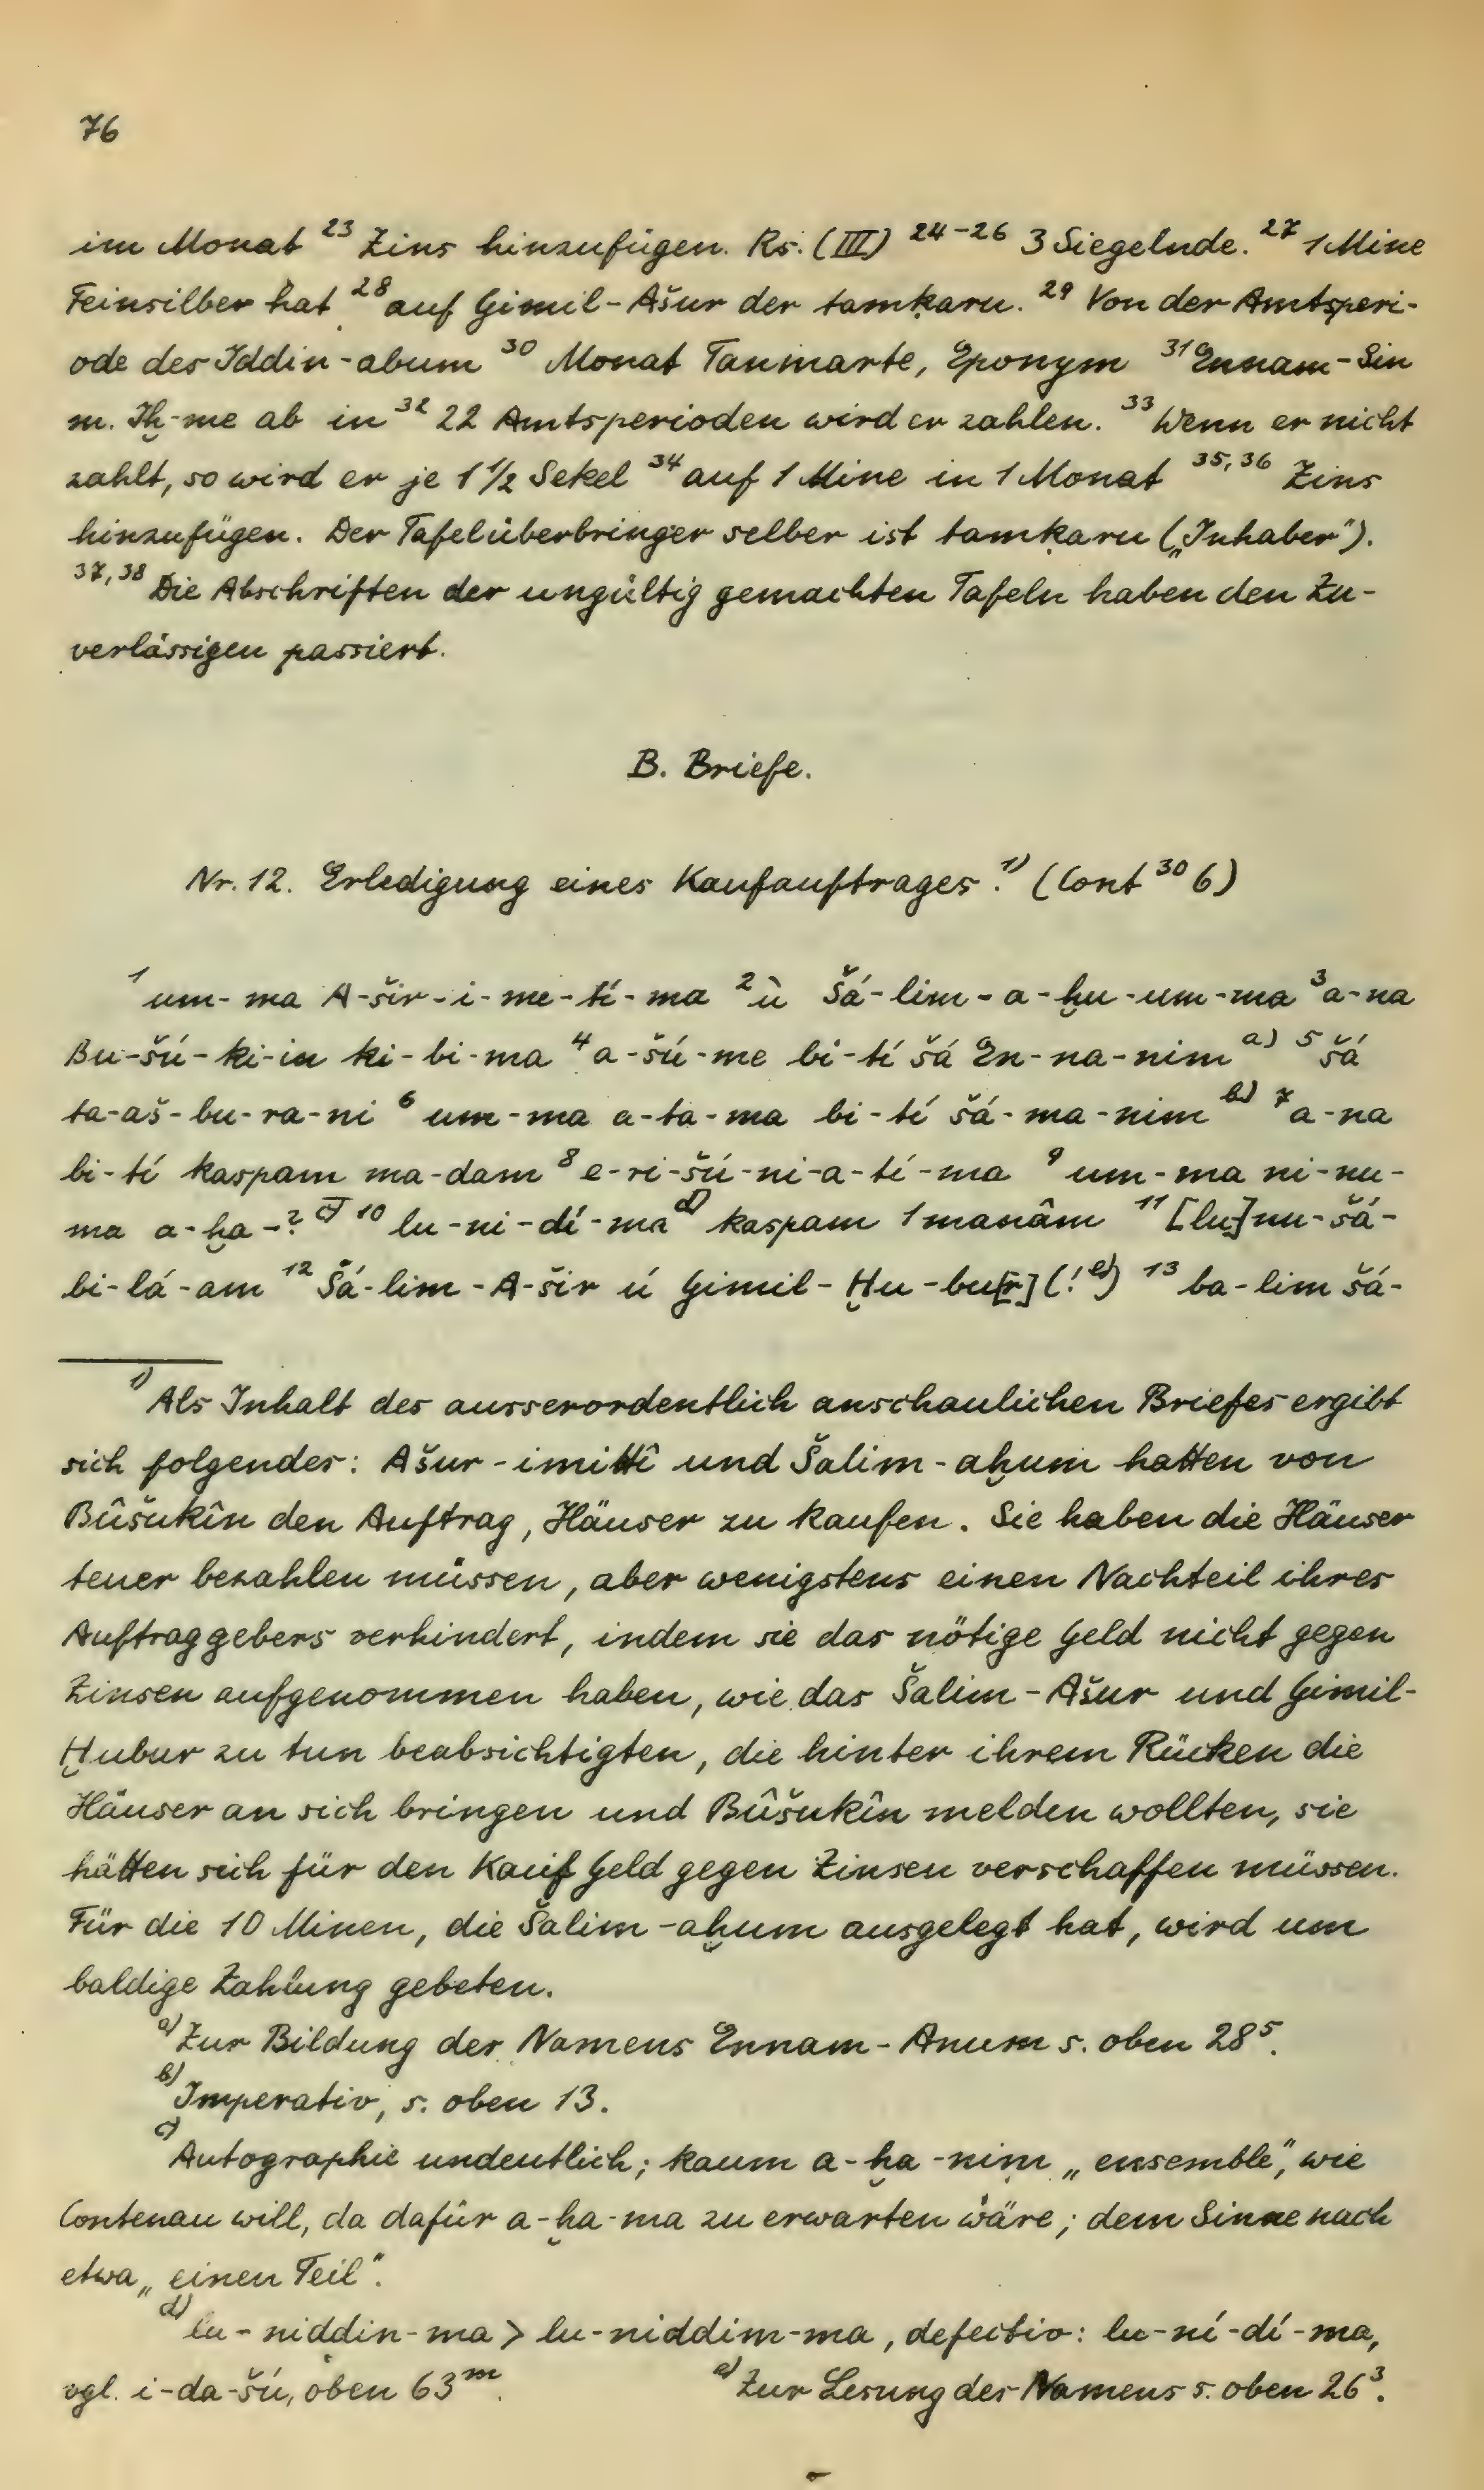 76
im Monat ²³ Zins hinzufügen. Rs. (III) ²⁴⁻²⁶ 3 Siegelnde. ²⁷ 1 Mine
Feinsilber hat ²⁸ auf Gimil-Ašur der tamḳaru. ²⁹ Von der Amtsperi-
ode des Iddin-abum ³⁰ Monat Tanmarte, Eponym ³¹ Ennam-Sin
m. Iḫ-me ab in ³² 22 Amtsperioden wird er zahlen. ³³ Wenn er nicht
zahlt, so wird er je 1 1/2 Sekel ³⁴ auf 1 Mine in 1 Monat ³⁵,³⁶ Zins
hinzufügen. Der Tafelüberbringer selber ist tamḳaru („Inhaber").
³⁷,³⁸ Die Abschriften der ungültig gemachten Tafeln haben den Zu-
verlässigen passiert.
B. Briefe.
Nr. 12. Erledigung eines Kaufauftrages.¹⁾ (Cont ³⁰ 6)
¹ um-ma A-šir-i-me-tí-ma ² ù Šá-lim-a-ḫu-um-ma ³ a-na
Bu-šú-ki-in ki-bi-ma ⁴ a-šú-me bi-tí šá En-na-nim ᵃ⁾ ⁵ šá
ta-aš-bu-ra-ni ⁶ um-ma a-ta-ma bi-tí šá-ma-nim ᵇ⁾ ⁷ a-na
bi-tí kaspam ma-dam ⁸ e-ri-šú-ni-a-tí-ma ⁹ um-ma ni-nu-
ma a-ḫa-? ᶜ⁾ ¹⁰ lu-ni-dí-ma ᵈ⁾ kaspam 1 manâm ¹¹ [lu] nu-šá-
bi-lá-am ¹² Šá-lim-A-šir ú Gimil-Ḫu-bu[r] (! ᵉ⁾) ¹³ ba-lim šá-
¹⁾ Als Inhalt des ausserordentlich anschaulichen Briefes ergibt
sich folgendes: Ašur-imittî und Šalim-aḫum hatten von
Bûšukîn den Auftrag, Häuser zu kaufen. Sie haben die Häuser
teuer bezahlen müssen, aber wenigstens einen Nachteil ihres
Auftraggebers verhindert, indem sie das nötige Geld nicht gegen
Zinsen aufgenommen haben, wie das Šalim-Ašur und Gimil-
Ḫubur zu tun beabsichtigten, die hinter ihrem Rücken die
Häuser an sich bringen und Bûšukîn melden wollten, sie
hätten sich für den Kauf Geld gegen Zinsen verschaffen müssen.
Für die 10 Minen, die Šalim-aḫum ausgelegt hat, wird um
baldige Zahlung gebeten.
ᵃ⁾ Zur Bildung des Namens Ennam-Anum s. oben 28⁵.
ᵇ⁾ Imperativ, s. oben 13.
ᶜ⁾ Autographie undeutlich; kaum a-ḫa-nim „ensemble", wie
Contenau will, da dafür a-ḫa-ma zu erwarten wäre; dem Sinne nach
etwa „einen Teil".
ᵈ⁾ lu-niddin-ma > lu-niddim-ma, defectiv: lu-ní-dí-ma,
vgl. i-da-šú, oben 63ᵐ. ᵉ⁾ Zur Lesung des Namens s. oben 26³.